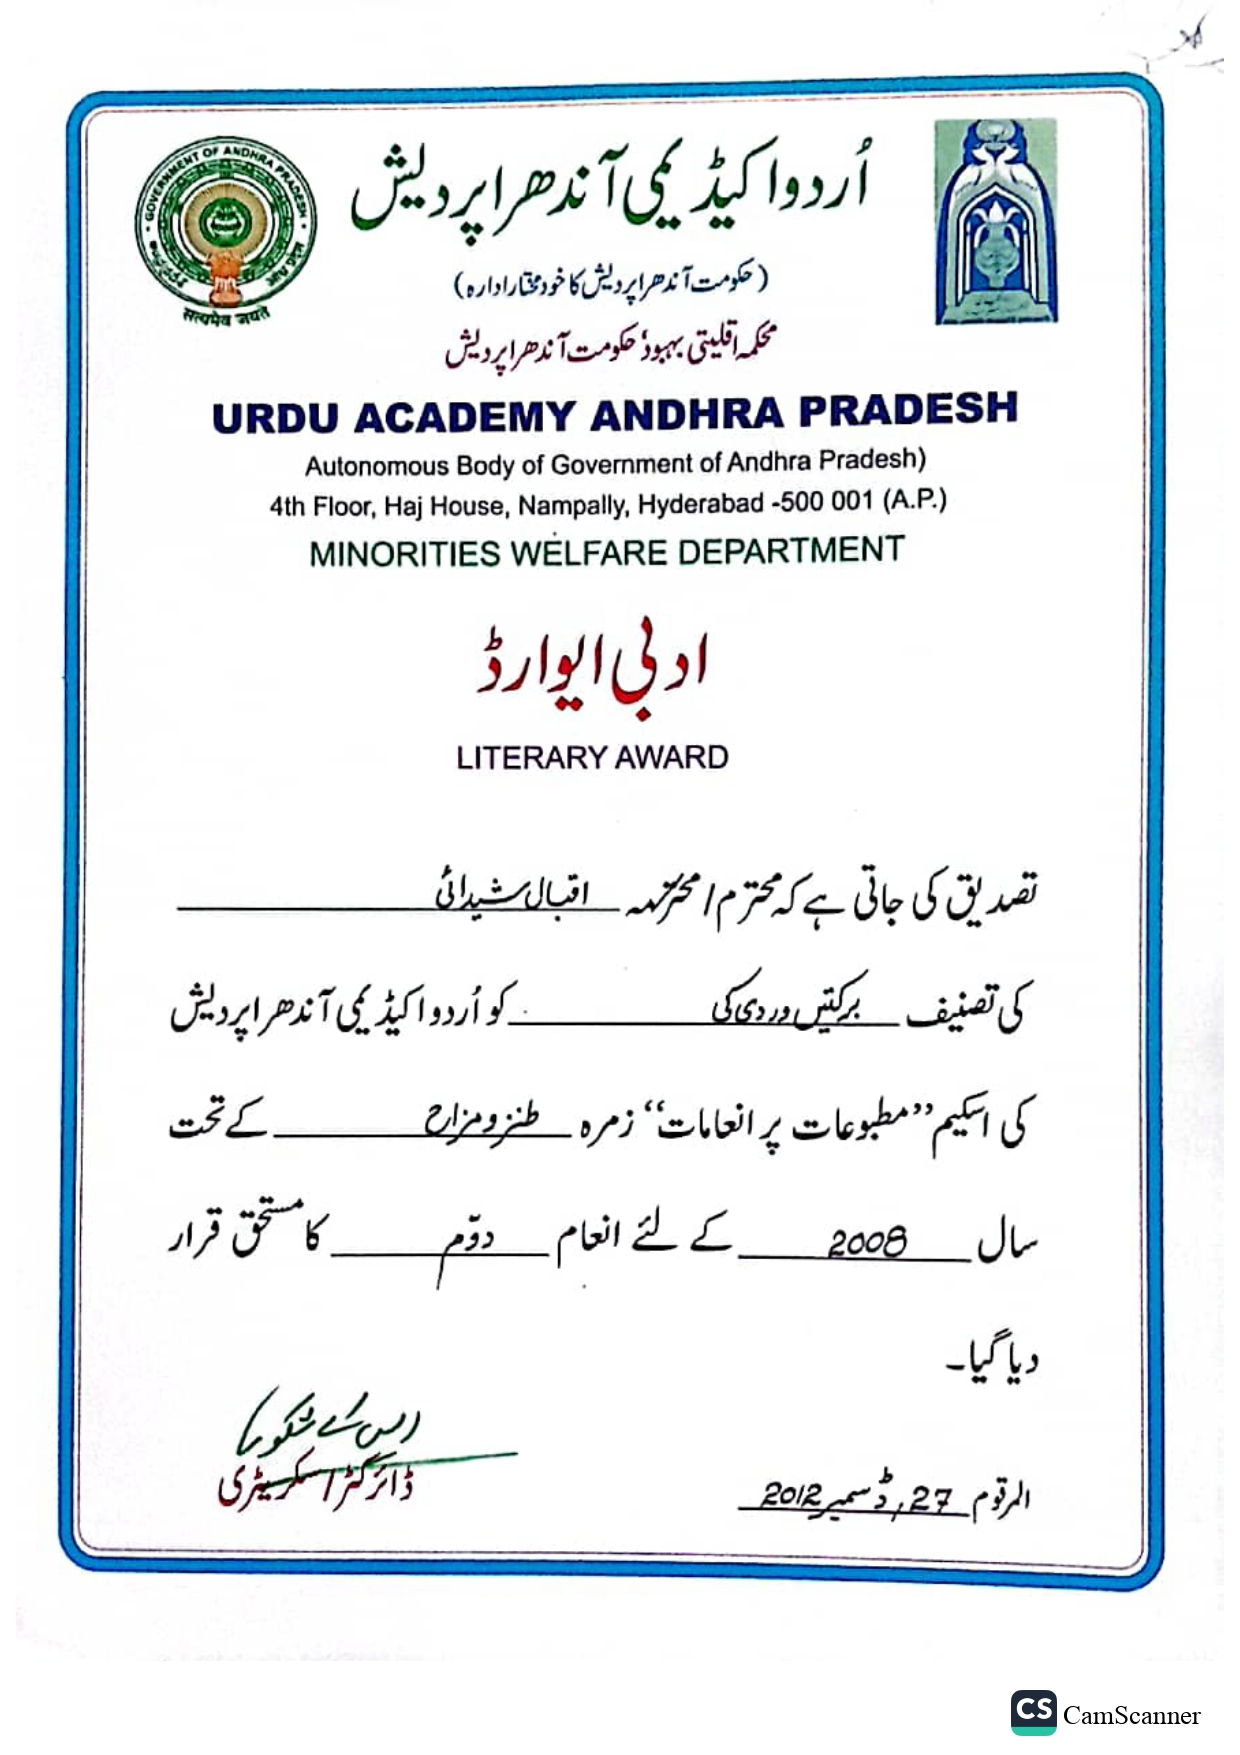 اُردو اکیڈیمی آندھرا پردیش
(حکومت آندھرا پردیش کا خود مختار ادارہ)
محکمہ اقلیتی بہبود' حکومت آندھرا پردیش
GOVERNMENT OF ANDHRA PRADESH
सत्यमेव जयते
URDU ACADEMY ANDHRA PRADESH
Autonomous Body of Government of Andhra Pradesh)
4th Floor, Haj House, Nampally, Hyderabad -500 001 (A.P.)
MINORITIES WELFARE DEPARTMENT
ادبی ایوارڈ
LITERARY AWARD
تصدیق کی جاتی ہے کہ محترم / محترمہ اقبال شیدائی
کی تصنیف برکتیں وردی کی کو اُردو اکیڈیمی آندھرا پردیش
کی اسکیم ”مطبوعات پر انعامات“ زمرہ طنز و مزاح کے تحت
سال 2008 کے لئے انعام دوّم کا مستحق قرار
دیا گیا۔
ایس اے شکور
ڈائرکٹر / سکریٹری
المرقوم 27, ڈسمبر 2012
CS CamScanner